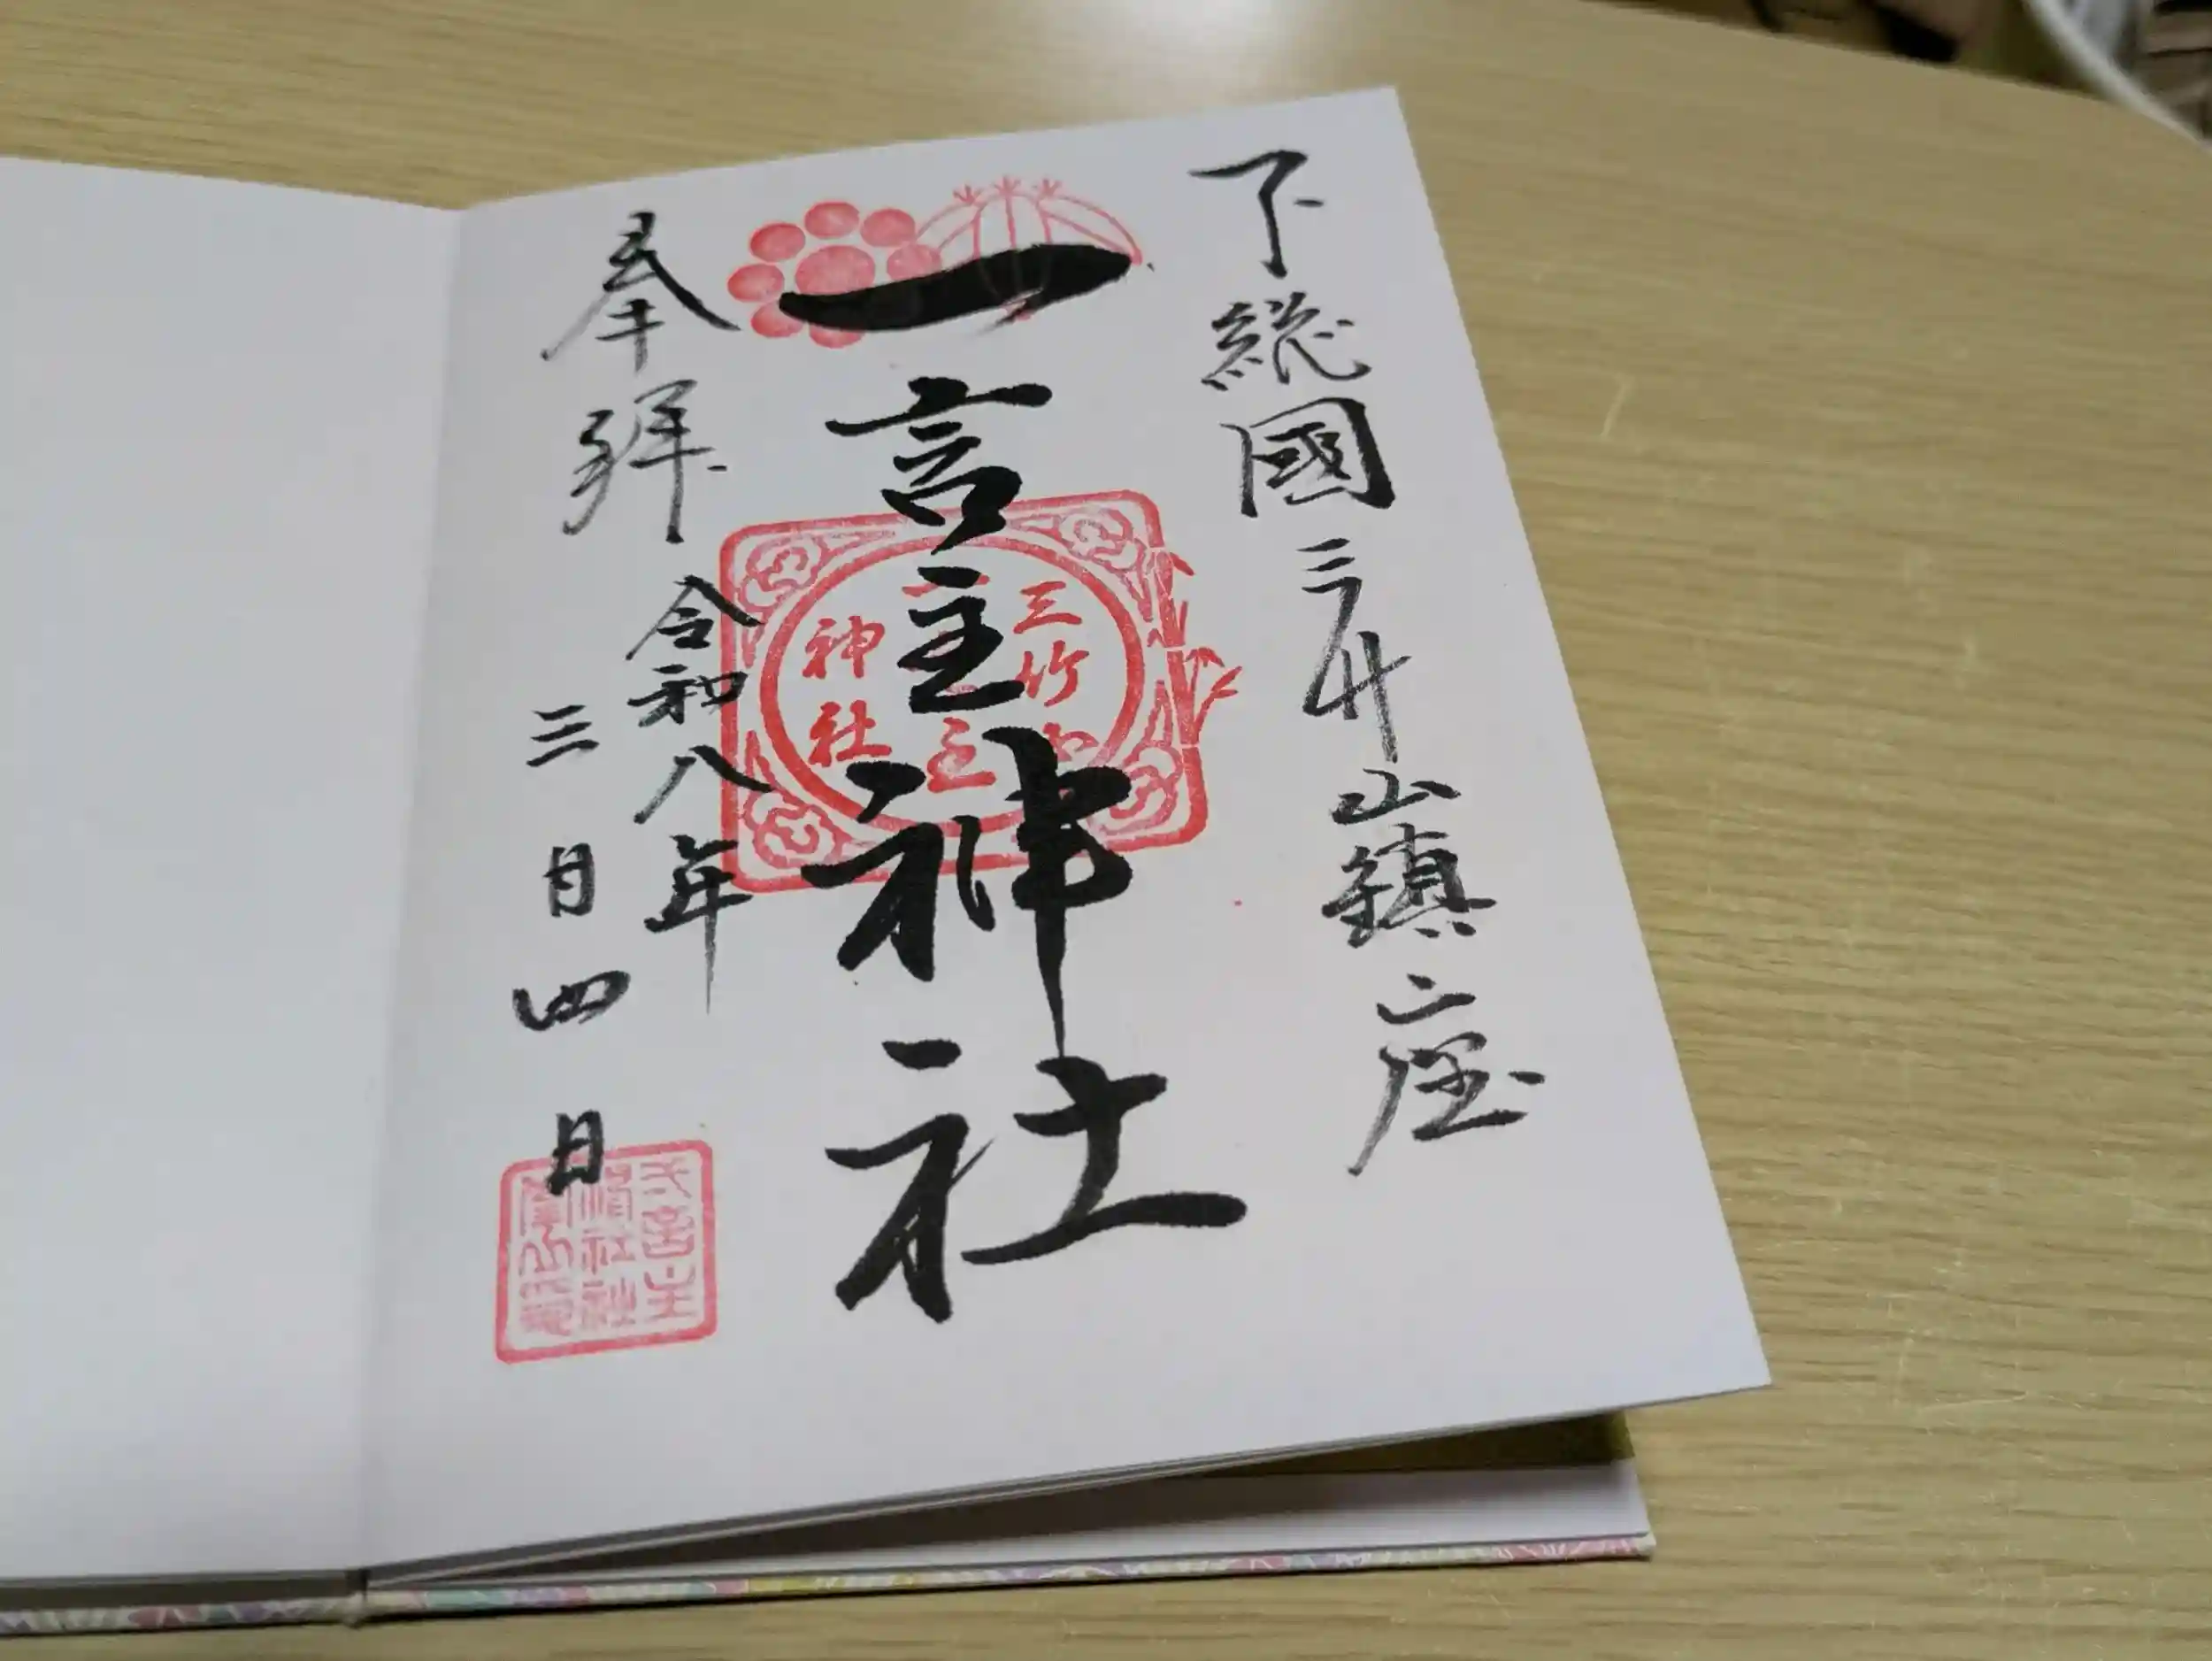 下総國三竹山鎮座
一言主神社
奉拝
令和八年
三月四日
三竹山
主
神社